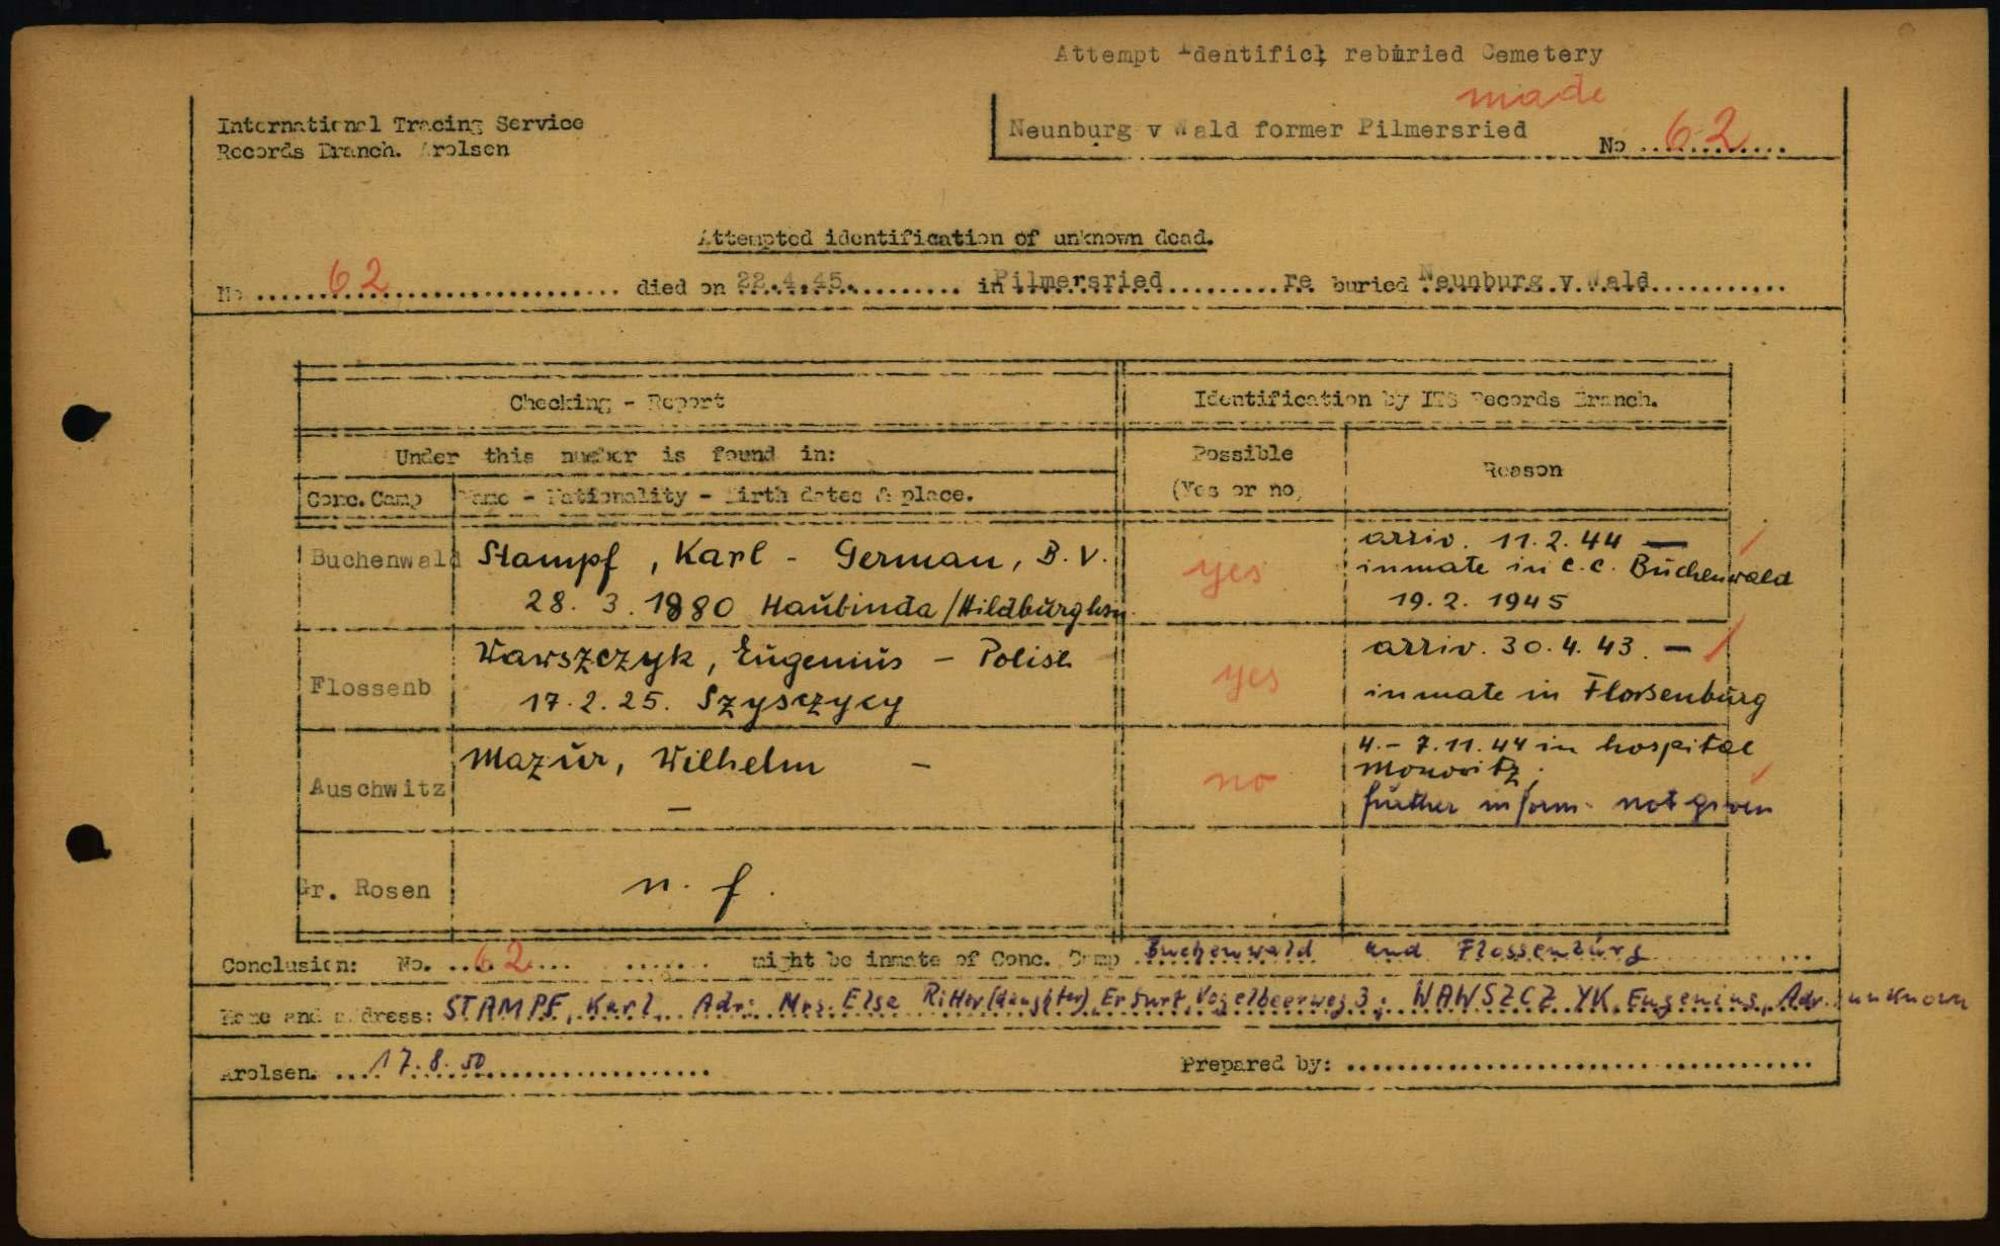 Attempt Identific. reburied Cemetery
made
International Tracing Service
Records Branch. Arolsen
Neunburg v Wald former Pilmersried
No 62
Attempted identification of unknown dead.
No 62 died on 22.4.45. in Pilmersried re buried Neunburg v. Wald
Checking - Report
Identification by ITS Records Branch.
Under this number is found in:
Possible
(Yes or no)
Reason
Conc. Camp
Name - Nationality - Birth dates & place.
Buchenwald
Stampf, Karl - German, B.V.
28. 3. 1880 Haubinda/Hildburghsn.
yes
arriv. 11.2.44 —
inmate in C.C. Buchenwald
19.2. 1945
Flossenb
Wawszczyk, Eugenius - Polish
17.2.25. Szysczycy
yes
arriv. 30.4.43. —
inmate in Flossenburg
Auschwitz
Mazur, Wilhelm -
-
no
4.-7.11.44 in hospital
Monowitz;
further inform. not given
Gr. Rosen
n. f.
Conclusion: No. 62 might be inmate of Conc. Camp Buchenwald and Flossenburg
Name and address: STAMPF, Karl, Adr: Mrs. Else Ritter (daughter), Erfurt, Vogelbeerweg 3; WAWSZCZYK, Eugenius, Adr. unknown
Arolsen. 17.8.50
Prepared by: